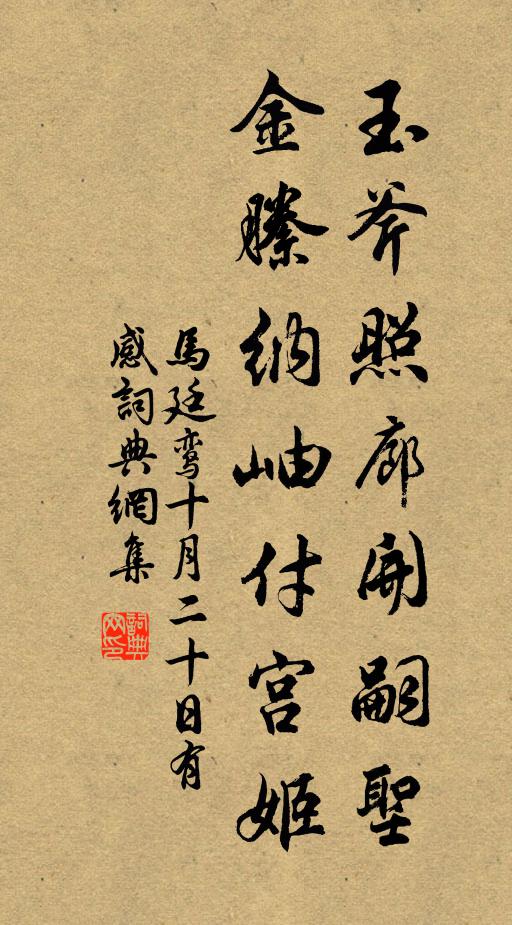 玉斧照廊開嗣聖
金縢納岫付宮姬
馬廷鸞十月二十日有
感詞典網集
詞典網印